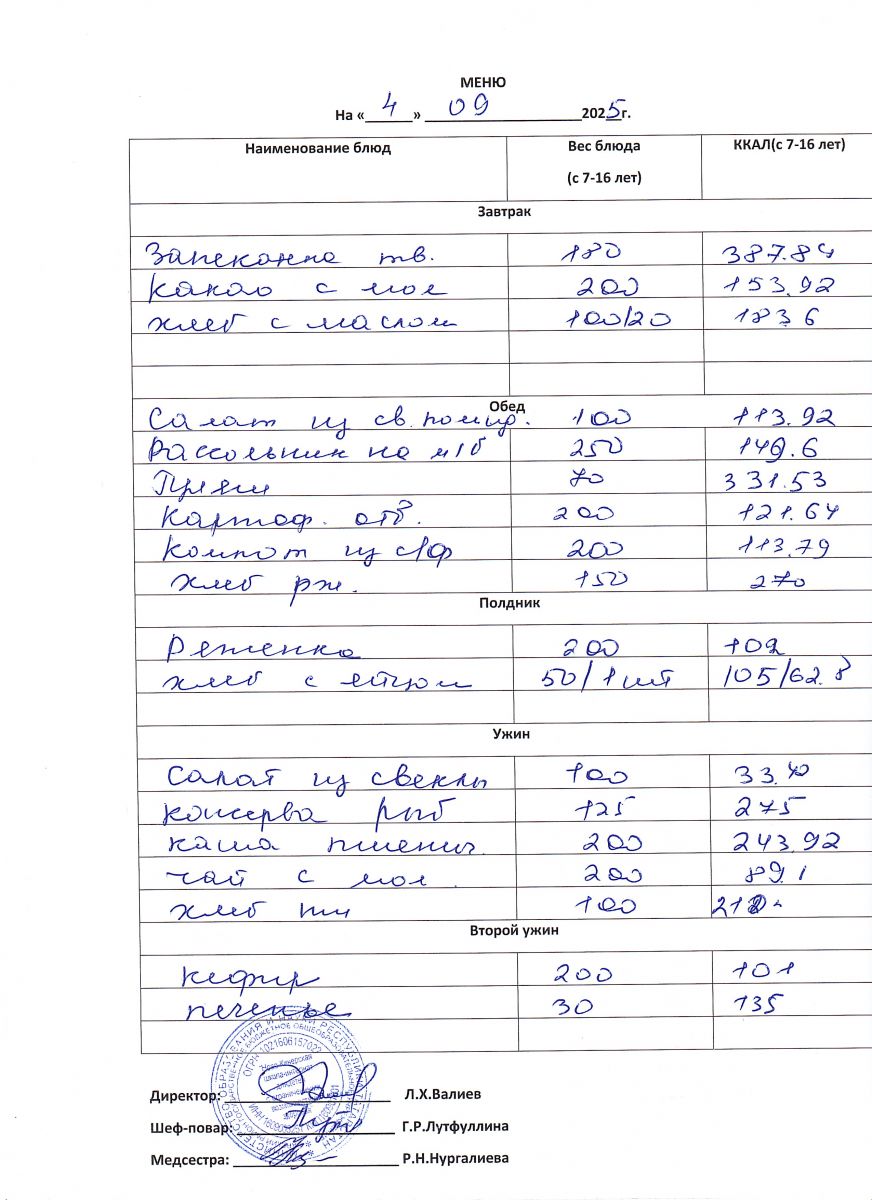 МЕНЮ
На «4» 09 2025г.
Наименование блюд Вес блюда (с 7-16 лет) ККАЛ(с 7-16 лет)
Завтрак
Запеканка тв. 180 387.84
Какао с мол 200 153.92
хлеб с маслом 100/20 183.6
Обед
Салат из св. помид. 100 113.92
Рассольник на м/б 250 149.6
70 331.53
Картоф. отв. 200 121.64
Компот из с/ф 200 113.79
хлеб рж. 150 270
Полдник
Ряженка 200 102
хлеб с яйцом 50/1 шт 105/62.8
Ужин
Салат из свеклы 100 33.40
консерва рыб 125 275
каша пшенич. 200 243.92
чай с мол. 200 89.1
хлеб пш 100
Второй ужин
кефир 200 101
печенье 30 135
Директор: Л.Х.Валиев
Шеф-повар: Г.Р.Лутфуллина
Медсестра: Р.Н.Нургалиева